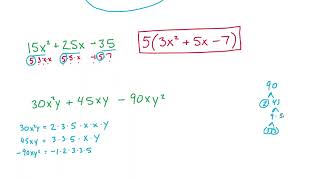 15x² + 25x - 35
5(3x² + 5x - 7)
5·3·x·x 5·5·x -1·5·7
30x²y + 45xy - 90xy²
30x²y = 2·3·5·x·x·y
45xy = 3·3·5·x·y
-90xy² = -1·2·3·3·5
90
2 45
9·5